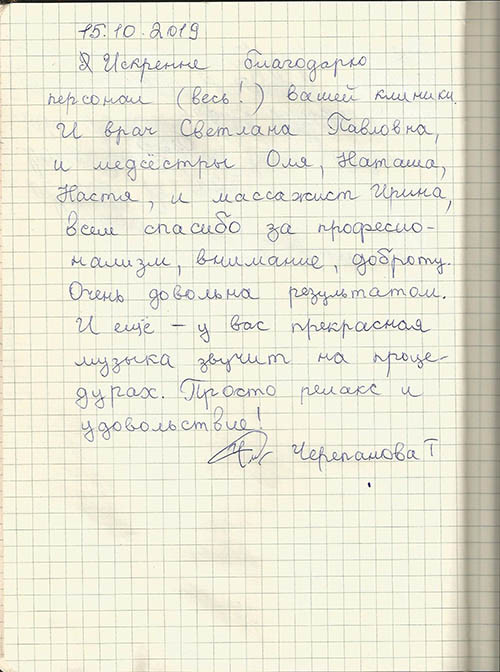 15.10.2019
Я Искренне благодарю
персонал (весь!) вашей клиники.
И врач Светлана Павловна,
и медсёстры Оля, Наташа,
Настя, и массажист Ирина,
всем спасибо за професио-
нализм, внимание, доброту.
Очень довольна результатом.
И ещё – у вас прекрасная
музыка звучит на проце-
дурах. Просто релакс и
удовольствие!
Черепанова Т